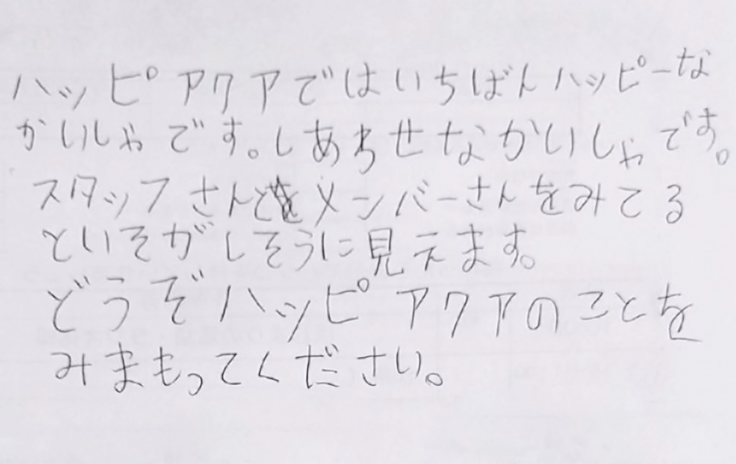 ハッピアクアではいちばんハッピーな
かいしゃです。しあわせなかいしゃです。
スタッフさんとメンバーさんをみてる
といそがしそうに見えます。
どうぞハッピアクアのことを
みまもってください。